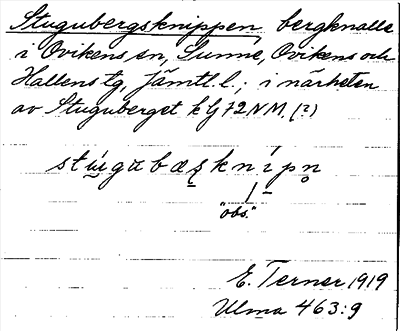 Stugubergsknippen, bergknalle
i Ovikens sn, Sunne, Ovikens och
Hallens tg, Jämtl. l.; i närheten
av Stuguberget k G 72 N M. (?)
stúgubæṣknípn̥
"obs."
E. Terner 1919
Ulma 463:9